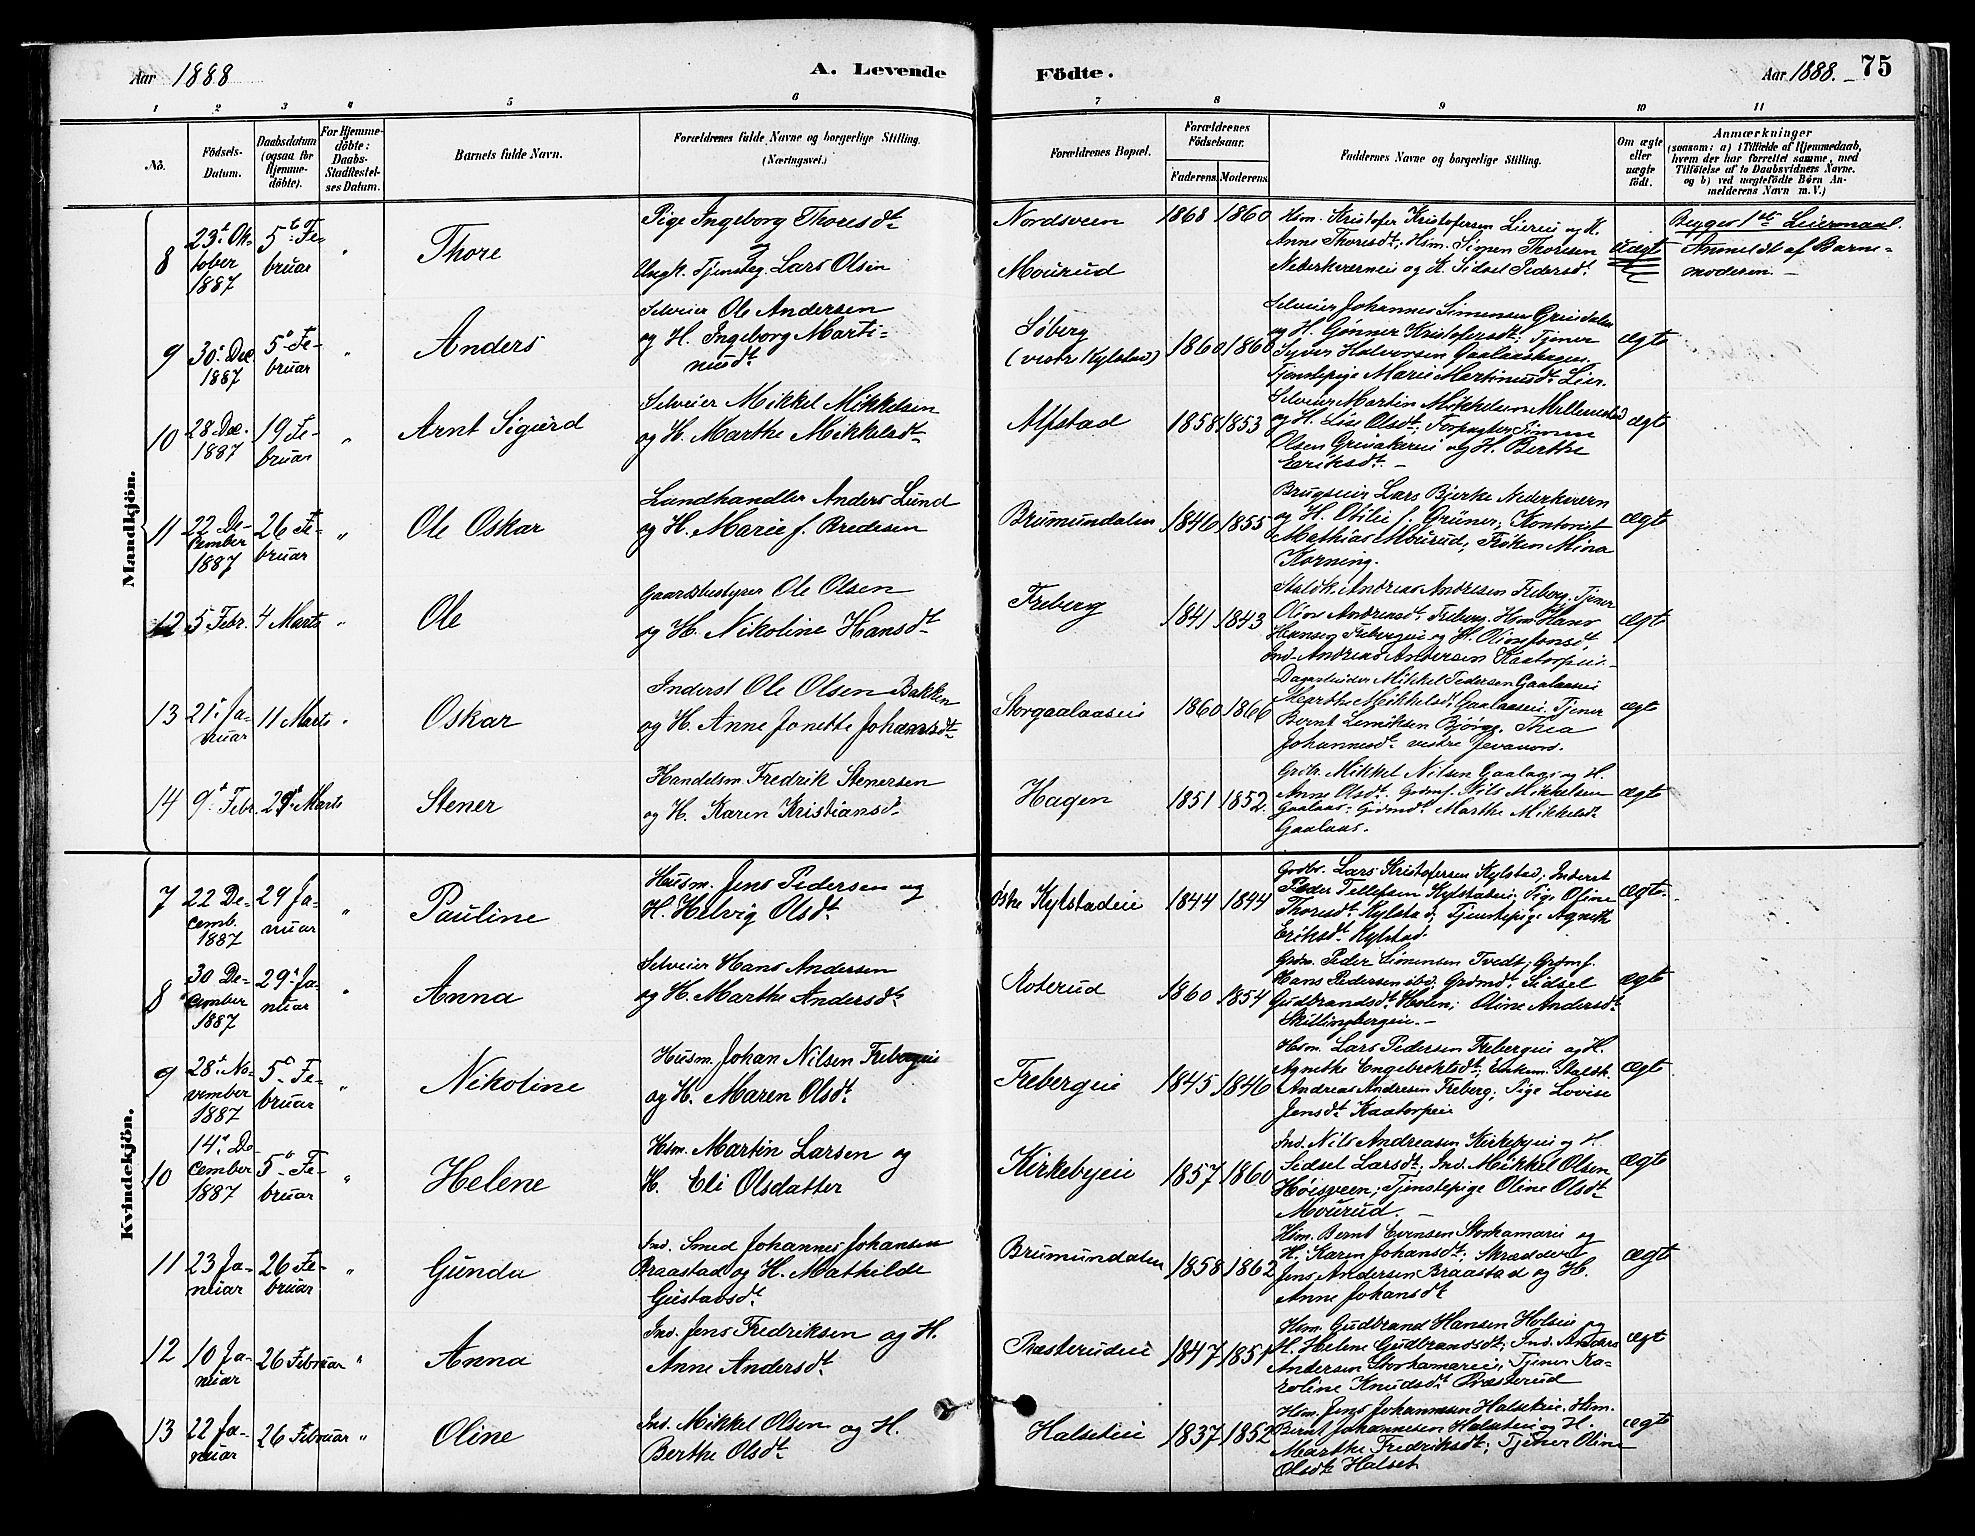 Aar 1888
A. Levende
Födte.
Aar 1888. 75
1 2 3 4 5 6 7 8 9 10 11
No.
Födsels-
Datum.
Daabsdatum
(ogsaa for
Hjemme-
döbte).
For Hjemme-
döbte:
Daabs-
Stadfæstel-
ses Datum.
Barnets fulde Navn.
Forældrenes fulde Navne og borgerlige Stilling.
(Næringsvei.)
Forældrenes Bopæl.
Forældrenes
Födselsaar.
Faderens. Moderens.
Faddernes Navne og borgerlige Stilling.
Om ægte
eller
uægte
födt.
Anmærkninger
(saasom: a) i Tilfælde af Hjemmedaab,
hvem der har forrettet samme, med
Tilföielse af to Daabsvidners Navne.
og b) ved uægtefödte Börn An-
melderens Navn m. V.)
Mandkjön.
8
23t Ok-
tober
1887
5te Fe-
bruar
"
Thore
Pige Ingeborg Thoresdt
Ungk. Tjensteg. Lars Olsen
Nordsveen
Mourud
1868 1860
Hsm. Kristofer Kristofersen Lierei og K.
Anne Thoresdt; Hsm. Simen Thoresen
Nederkværnei og K. Sidsel Pedersdt
Uægte
Begges 1ste Leiermaal.
Anmeldt af Barne-
moderen. -
9
30 Dec
1887
5 Fe-
bruar
"
Anders
Selveier Ole Andersen
og H. Ingeborg Marti-
nusdt
Söberg
(vestr Kylstad)
1860 1860
Selveier Johannes Simensen Grindalen
og H. Gönner Kristofersdt; Tjener
Syver Halvorsen Gaalaashagen.
Tjenstepige Marie Martinusdt Lier.
ægte
10
28 Dec.
1887
19 Fe-
bruar
"
Arnt Sigurd
Selveier Mikkel Mikkelsen
og H. Marthe Mikkelsdt
Alfstad
1858 1853
Selveier Martin Mikkelsen Mellemstad
og H. Lise Olsdt; Forpagter Simen
Olsen Grivakærei og H. Berthe
Eriksdt. -
ægte
11
22 De-
cember
1887
26 Fe-
bruar
"
Ole Oskar
Landhandler Anders Lund
og H. Marie f. Bredesen
Brumundalen
1846 1855
Brugseier Lars Bjerke Nederkværn
og H. Otilie f. Grüner; Kontorist
Mathias Mourud; Fröken Mina
Korning.
ægte
12
5 Febr.
4 Marts
"
Ole
Gaardsbestyrer Ole Olsen
og H. Nikoline Hansdt
Freberg
1841 1843
Staldk. Andreas Andresen Freberg. Tjener
Oline Andreasdt Freberg. Hsm. Hans
Hansen Frebergei og H. Oline Jonsdt
Ind. Andreas Andersen Kaatorpei.
ægte
13
21 Ja-
nuar
11 Marts
"
Oskar
Inderst Ole Olsen Bakken
og H. Anne Jonette Johannesdt
Storgaalaaseie
1860 1866
Dagarbeider Mikkel Pedersen Gaalaasei
Marthe Mikkelsdt Gaalaasei. Tjener
Bernt Lemiksen Bjørge. Thea
Johannesdt vestre Jevanord.
ægt
14
9 Febr.
29 Marts
Stener
Handelsm. Fredrik Stenersen
og H. Karen Kristiansdt
Hagen
1851 1852.
Grdbr. Mikkel Nilsen Gaalaas og H.
Anne Olsdt. Grdmf. Nils Mikkelsen
Gaalaas. Grdmdt Marthe Mikkelsdt
Gaalaas.
ægte
Kvindekjön.
7
22 De-
cemb.
1887
29 Ja-
nuar
"
Pauline
Husm. Jens Pedersen og
H. Helvig Olsdt
Östre Kylstadeie
1844 1844
Grdbr. Lars Kristofersen Kylstad; Inderst
Peder Tellefsen Kylstadeie; Pige Oline
Thoresdt Kylstad; Tjenstepige Agnethe
Eriksdt Kylstad.
ægte.
8
30 De-
cember
1887
29 Ja-
nuar
"
Anna
Selveier Hans Andersen
og H. Marthe Andersdt
Aoterud
1860 1854
Grdm. Peder Simensen Tvedt; Grdmf.
Hans Pedersen ibd. Grdmdt Sidsel
Gudbrandsdt Holen; Oline Andersdt
Skillingbergeie. -
ægte
9
28 No-
vember
1887
5 Fe-
bruar
"
Nikoline
Husm. Johan Nilsen Frebergeie
og H. Maren Olsdt
Frebergeie
1845 1846
Hsm. Lars Pedersen Frebergeie og H.
Agnethe Engebretsdt; Enkem. Staldk.
Andreas Andresen Freberg; Pige Lovise
Jensdt Kaatorpeie
ægte
10
14 De-
cember
1887
5 Fe-
bruar
"
Helene
Hsm. Martin Larsen og
H. Eli Olsdatter
Kirkebyeie
1857 1860
Ind. Nils Andreasen Kirkebyei og H.
Sidsel Larsdt; Ind. Mikkel Olsen
Höisveen; Tjenstepige Oline Olsdt
Mourud. -
ægte
11
23 Ja-
nuar
26 Fe-
bruar
"
Gunda
Ind. Smed Johannes Johansen
Braastad og H. Mathilde
Gustavsdt
Brumundalen
1858 1862
Hsm. Bernt Evensen Storhamarei og
H. Karen Johansdt; Skrædder
Jens Andersen Braastad og H.
Anne Johansdt
ægte
12
10 Ja-
nuar
26 Februar
"
Anna
Ind. Jens Fredriksen og H.
Anne Andersdt
Præsterudeie
1847 1851
Hsm. Gudbrand Hansen Holseie og
H. Helene Gudbrandsdt; Ind. Anders
Andersen Storhamareie; Tjener Ka-
roline Knudsdt Præsterud
ægt
13
22 Ja-
nuar
26 Februar
"
Oline
Ind. Mikkel Olsen og H.
Berthe Olsdt
Halseteie
1837 1852
Hsm. Jens Johannesen Halseteie. Hsm.
Bernt Johannesen Halseteie og H.
Marthe Fredriksdt; Tjener Oline
Olsdt Halset
ægt